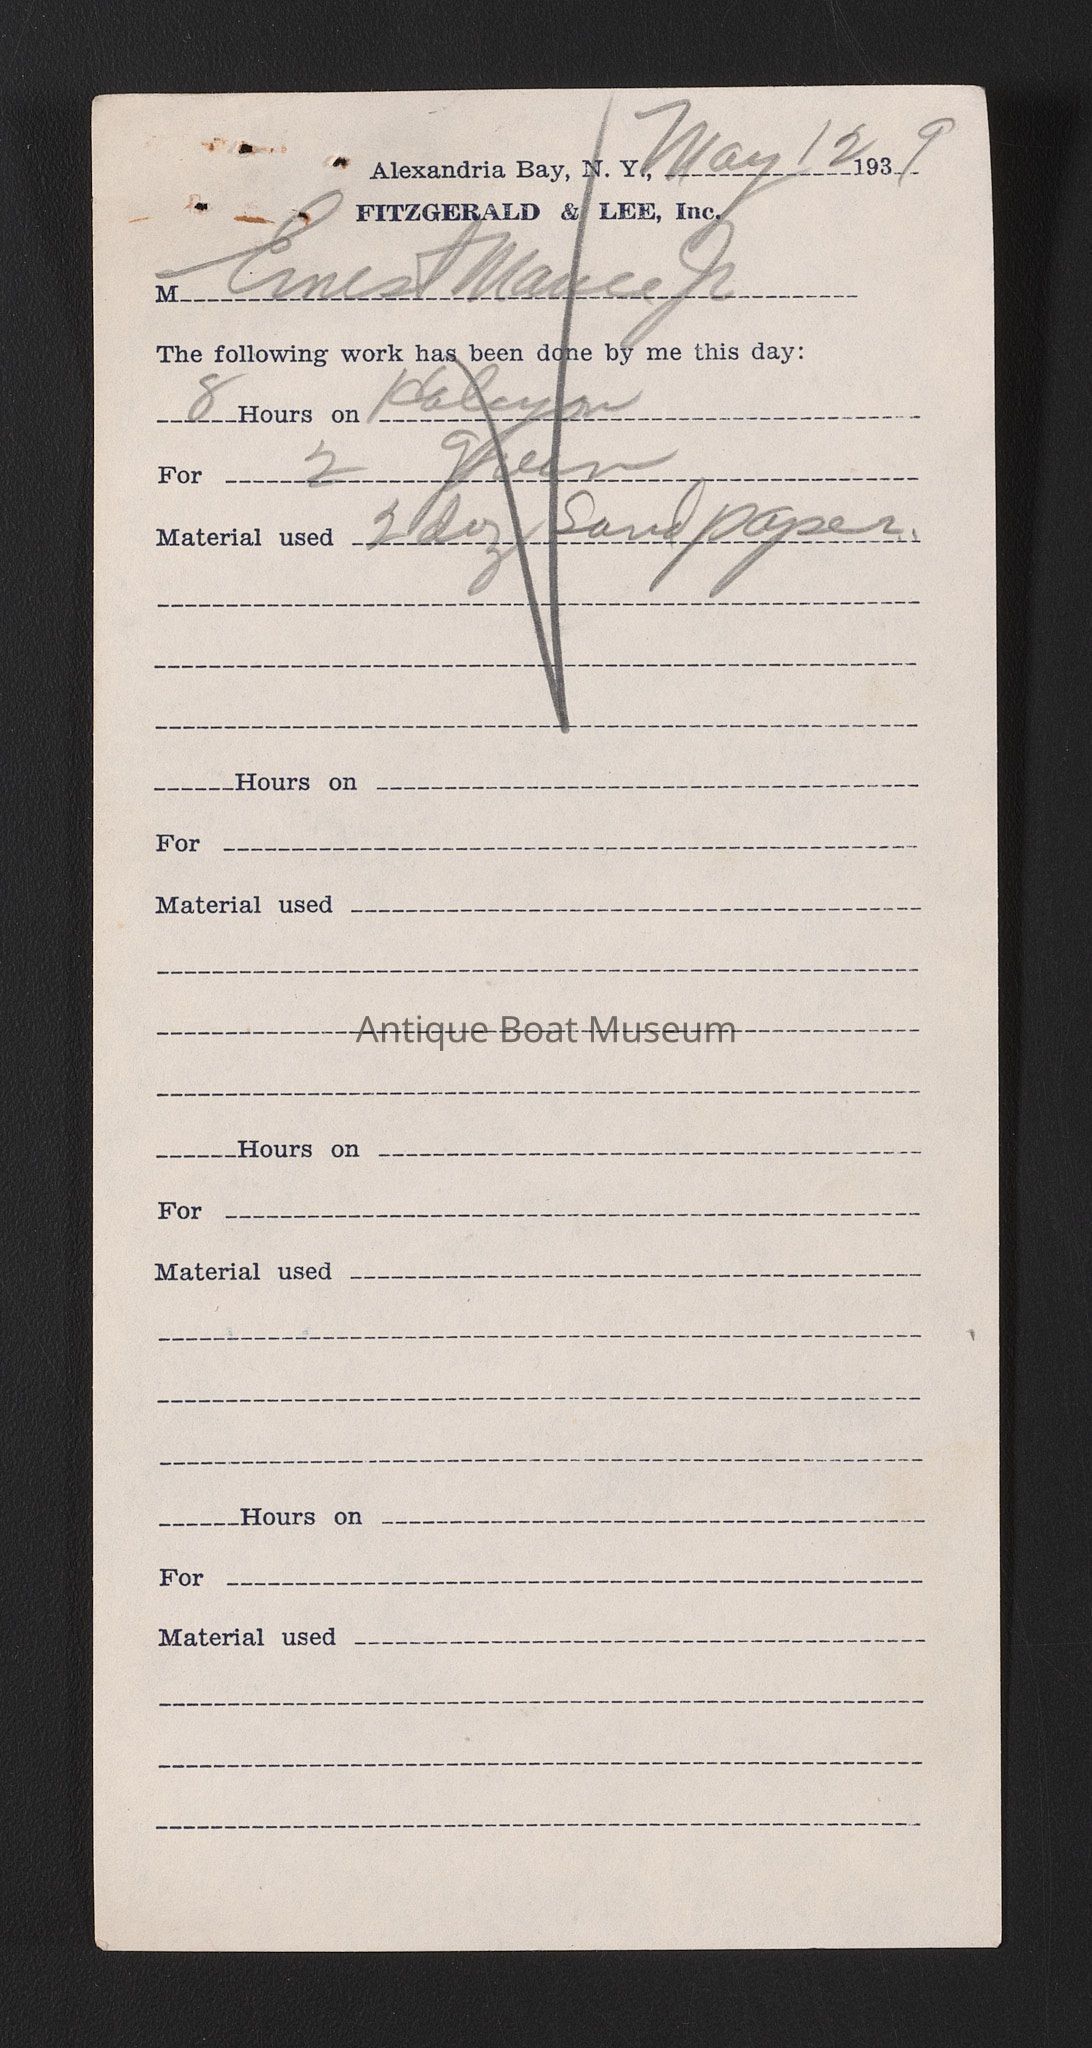 Alexandria Bay, N. Y., May 12 1939
FITZGERALD & LEE, Inc.
M Ernest Jr
The following work has been done by me this day:
8 Hours on Halcyon
For 2 Green
Material used 2 doz Sand paper
Hours on
For
Material used
Antique Boat Museum
Hours on
For
Material used
Hours on
For
Material used